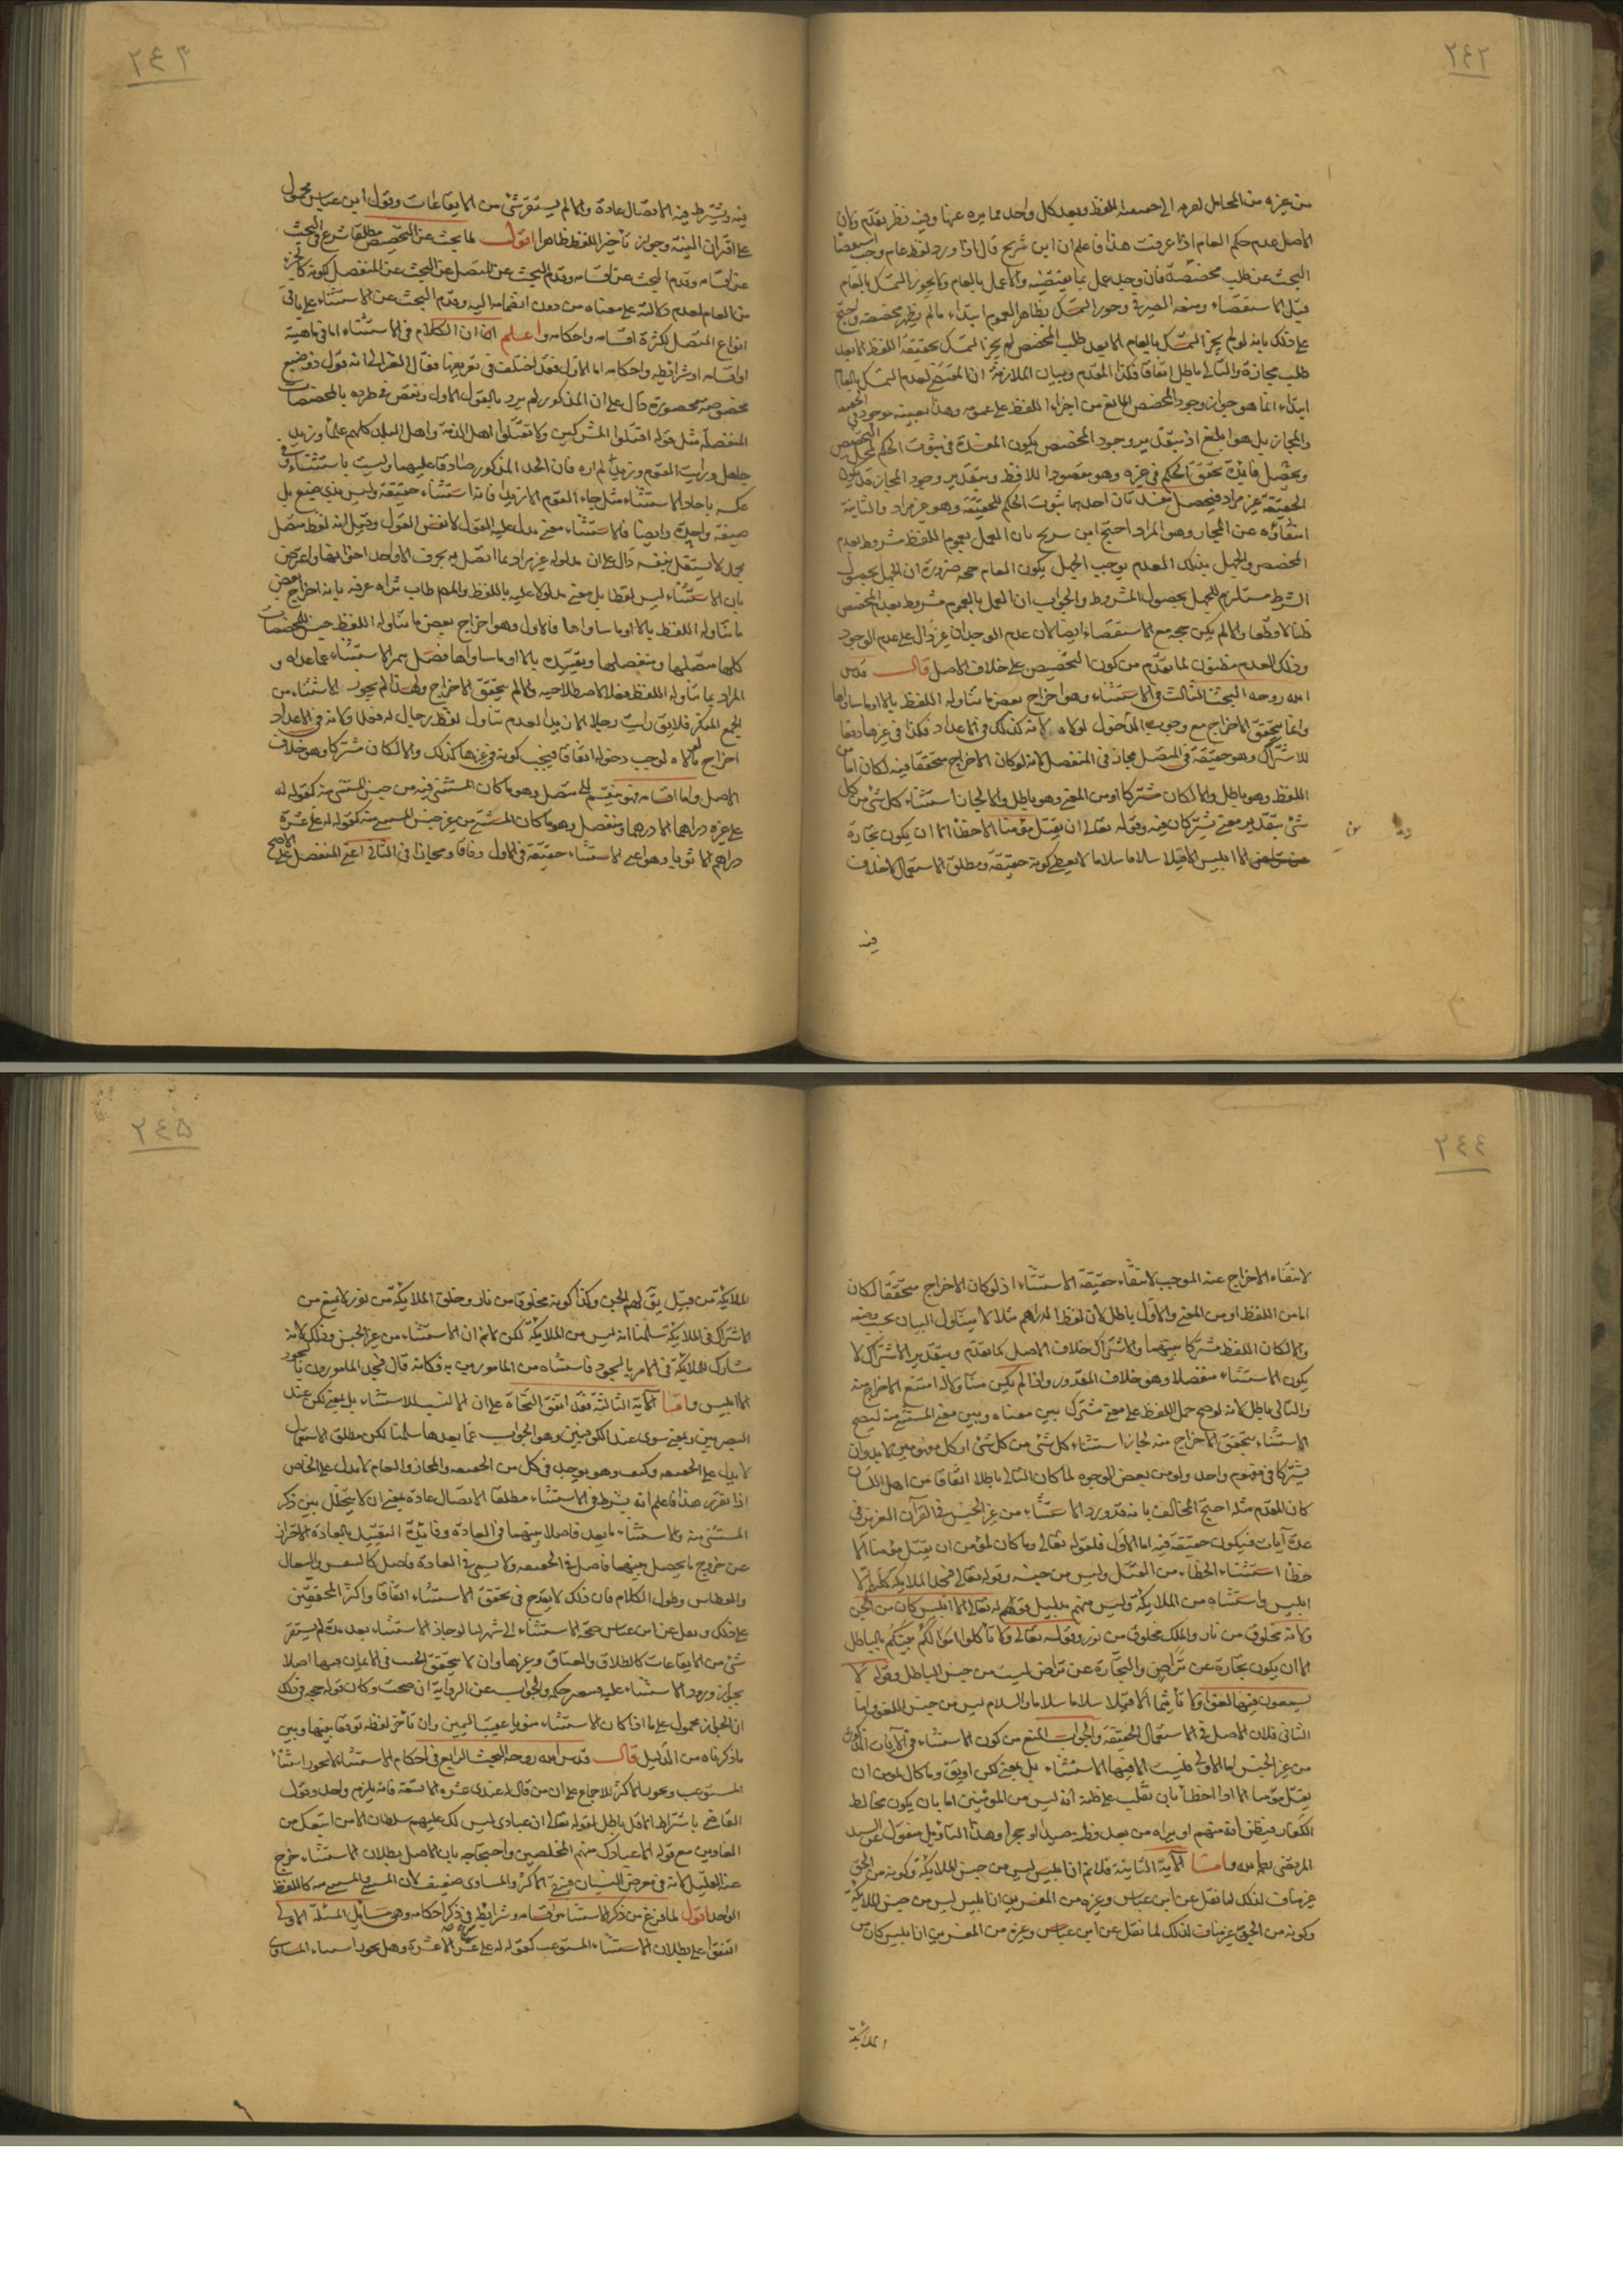 ٢٤٢
من غيره من المحامل لقربه الى حقيقة اللفظ وبعد كل واحد مما يره عنها وفيه نظر تقدم ولان
الاصل عدم حكم العام اذا عرفت هذا فاعلم ان ابن شريح قال اذا ورد لفظ عام وجب
البحث عن طلب مخصصه فان وجد عمل بما يقتضيه والا عمل بالعام ولا يجوز التمسك بالعام
قبل الاستقصاء ومنعه الصيرفي وجوز التمسك بظاهر العموم ابتداء ما لم يظهر مخصصه واحتج
على ذلك بانه لو لم يجز التمسك بالعام الا بعد طلب المخصص لم يجز التمسك بحقيقة اللفظ الا بعد
طلب مجازه والتالي باطل اتفاقا فكذا المقدم وبيان الملازمة ان المقتضي لعدم التمسك بالعام
ابتداء انما هو جواز وجود المخصص المانع من اجراء اللفظ على عمومه وهذا بعينه موجود في الحقيقة
والمجاز بل هو ابلغ اذ بتقدير وجود المخصص يكون المفسدة في ثبوت الحكم لمحل التخصيص
ويحصل فائدة تحقق الحكم في غيره وهو مقصود اللافظ وبتقدير وجود المجاز قد يكون
الحقيقة غير مراد فيحصل مفسدتان احدهما ثبوت الحكم للحقيقة وهو غير مراد والثانية
انتفاؤه عن المجاز وهو المراد احتج ابن سريح بان العمل بعموم اللفظ مشروط بعدم
المخصص والجهل بذلك العدم يوجب الجهل بكون العام حجة ضرورة ان الجهل بحصول
الشرط مستلزم للجهل بحصول المشروط والجواب ان العمل بالعموم مشروط بعدم المخصص
ظنا لا قطعا والا لم يكن حجة مع الاستقصاء ايضا لان عدم الوجدان غير دال على عدم الوجود
وذلك العدم مظنون لما تقدم من كون التخصيص على خلاف الاصل قال قدس
الله روحه البحث الثالث في الاستثناء وهو اخراج بعض ما تناوله اللفظ بالا او ما ساواها
وانما يتحقق الاخراج مع وجوب الدخول لولاه لانه كذلك في الاعداد فكذا في غيرها دفعا
للاشتراك وهو حقيقة في المتصل مجاز في المنفصل لانه لو كان الاخراج متحققا فيه لكان اما من
اللفظ وهو باطل والا لكان مشتركا او من المعنى وهو باطل والا لجاز استثناء كل شئ من كل
شئ بتقدير معنى يشتركان فيه وقوله تعالى ان يقتل مؤمنا الا خطأ الا ان يكون تجارة
عن تراض الا ابليس الا قيلا سلاما سلاما لا يعطي كونه حقيقة ومطلق الاستعمال لا خلاف
فيه
٢٤٣
فيه ويشترط فيه الاتصال عادة والا لم يستقر شئ من الايقاعات وقول ابن عباس محمول
على اقتران النية وجواز تأخير اللفظ ظاهرا اقول لما بحث عن التخصيص مطلقا شرع في البحث
عن اقسامه وقدم البحث عن اقسامه وقدم البحث عن المتصل عن البحث عن المنفصل لكونه كالجزء
من العام لعدم دلالته على معناه من دون انضمامه اليه وقدم البحث عن الاستثناء على باقي
انواع المتصل لكثرة اقسامه واحكامه واعلم ان الكلام في الاستثناء اما في ماهيته
او اقسامه او شرائطه واحكامه اما الاول فقد اختلف في تعريفها فقال الغزالي انه قول ذو صيغ
مخصوصة محصورة دال على ان المذكور لم يرد بالقول الاول ونقض في طرده بالمخصصات
المنفصلة مثل قوله اقتلوا المشركين ولا تقتلوا اهل الذمة واهل البلد كلهم علماء وزيد
جاهل ورايت القوم وزيدا لم اره فان الحد المذكور صادق عليها وليست باستثناء وفي
عكسه باحاد الاستثناء مثل جاء القوم الا زيدا فانه استثناء حقيقة وليس بذي صيغ بل
صيغة واحدة وايضا فالاستثناء معنى مدلول عليه القول لا نفس القول وقيل انه لفظ متصل
بجملة لا يستقل بنفسه دال على ان مدلوله غير مراد بما اتصل به بحرف الا واحد اخواتها واعترض
بان الاستثناء ليس لفظا بل معنى مدلولا عليه باللفظ والمص طاب ثراه عرفه بانه اخراج بعض
ما تناوله اللفظ بالا او ما ساواها فالاول وهو اخراج بعض ما تناوله اللفظ جنس للمخصصات
كلها متصلها ومنفصلها وتقييده بالا او ما ساواها فصل يميز الاستثناء عما عداه و
المراد بما تناوله اللفظ فعلا لا صلاحية والا لم يتحقق الاخراج ولهذا لم يجوز الاستثناء من
الجمع المنكر فلا يق رايت رجالا الا زيدا لعدم تناول لفظ رجال له فعلا ولانه في الاعداد
اخراج ما لولاه لوجب دخوله اتفاقا فيجب كونه في غيرها كذلك والا لكان مشتركا وهو خلاف
الاصل واما اقسامه فهو ينقسم الى متصل وهو ما كان المستثنى فيه من جنس المستثنى منه كقوله له
على عشرة دراهم الا درهما ومنفصل وهو ما كان المستثنى من غير جنس المستثنى منه كقوله له على عشرة
دراهم الا ثوبا وهو اعني الاستثناء حقيقة في الاول وفاقا ومجازا في الثاني اعني المنفصل على الاصح
٢٤٤
لانتفاء الاخراج عنه الموجب لانتفاء حقيقة الاستثناء اذ لو كان الاخراج متحققا لكان
اما من اللفظ او من المعنى والاول باطل لان لفظ الدراهم مثلا لا يتناول الثياب بحسب وضعه
والا لكان اللفظ مشتركا بينهما والاشتراك خلاف الاصل كما تقدم وبتقدير الاشتراك لا
يكون الاستثناء منفصلا وهو خلاف المقدور واذا لم يكن متناولا له امتنع الاخراج منه
والتالي باطل لانه لو صح حمل اللفظ على معنى مشترك بين معناه وبين معنى المستثنى منه ليصح
الاستثناء بتحقق الاخراج منه لجاز استثناء كل شئ من كل شئ اذ كل مفهومين لا بد وان
يشتركا في مفهوم واحد ولو من بعض الوجوه لما كان التالي باطلا اتفاقا من اهل اللسان
كان المقدم مثله احتج المخالف بانه قد ورد الاستثناء من غير الجنس في القرآن العزيز في
عدة آيات فيكون حقيقة فيه اما الاول فلقوله تعالى وما كان لمؤمن ان يقتل مؤمنا الا
خطأ استثناء الخطاء من القتل وليس من جنسه وقوله تعالى فسجد الملائكة كلهم الا
ابليس واستثناه من الملائكة وليس منهم بدليل قوله تعالى الا ابليس كان من الجن
ولانه مخلوق من نار والملك مخلوق من نور وقوله تعالى ولا تأكلوا اموالكم بينكم بالباطل
الا ان يكون تجارة عن تراض والتجارة عن تراض ليست من جنس الباطل وقوله لا
يسمعون فيها لغوا ولا تأثيما الا قيلا سلاما سلاما والسلام ليس من جنس اللغو واما
الثاني فلان الاصل في الاستعمال الحقيقة والجواب المنع من كون الاستثناء في الآيات المذكورة
من غير الجنس اما الاولى فليست الا فيها للاستثناء بل بمعنى لكن او يق وما كان لمؤمن ان
يقتل مؤمنا الا اذا اخطأ بان تغلب على ظنه انه ليس من المؤمنين اما بان يكون مخالط
الكفار فيظن انه منهم او يراه من بعد فظنه صيدا او حجرا وهذا التأويل منقول عن السيد
المرتضى رحمه الله واما الآية الثانية فلا نم ان ابليس ليس من جنس الملائكة وكونه من الجن
غير مناف لذلك لما نقل عن ابن عباس وغيره من المفسرين ان ابليس ليس من جنس الملائكة
وكونه من الجن غير مناف لذلك لما نقل عن ابن عباس وغيره من المفسرين ان ابليس كان من
الملائكة
٢٤٥
الملائكة من قبيل يق لهم الجن وكذا كونه مخلوقا من نار وخلق الملائكة من نور لا يمنع من
الاشتراك في الملائكة سلمنا انه ليس من الملائكة لكن لا نم ان الاستثناء من غير الجنس وذلك لانه
مشارك للملائكة في الامر بالسجود فاستثناه من المامورين به فكانه قال فسجد المامورون بالسجود
الا ابليس واما الآية الثالثة فقد اتفق النحاة على ان الا ليست للاستثناء بل بمعنى لكن عند
البصريين وبمعنى سوى عند الكوفيين وهو الجواب عما بعدها سلمنا لكن مطلق الاستعمال
لا يدل على الحقيقة وكيف وهو يوجد في كل من الحقيقة والمجاز والعام لا يدل على الخاص
اذا تقرر هذا فاعلم انه يشترط في الاستثناء مطلقا الاتصال عادة بمعنى ان لا يتخلل بين ذكر
المستثنى منه والاستثناء ما يعد فاصلا بينهما في العادة وفائدة التقييد بالعادة الاحتراز
عن خروج ما يحصل بينهما فاصل في الحقيقة ولا يسمى في العادة فاصل كالتنفس والسعال
والعطاس وطول الكلام فان ذلك لا يقدح في تحقق الاستثناء اتفاقا واكثر المحققين
على ذلك ونقل عن ابن عباس صحة الاستثناء الى شهر لنا لو جاز الاستثناء بعد مدة لم يستقر
شئ من الايقاعات كالطلاق والعتاق وغيرها وان لا يتحقق الحنث في الايمان فيها اصلا
بجواز ورود الاستثناء عليه فيتغير حكمه والجواب عن الرواية ان صحت وكان قوله حجة في ذلك
ان الجواز محمول على ما اذا كان الاستثناء منويا عقيب اليمين وان تأخر لفظه توفيقا بينها وبين
ما ذكرناه من الدليل قال قدس الله روحه البحث الرابع في احكام الاستثناء لا يجوز استثناء
المستوعب ويجوز الاكثر للاجماع على ان من قال له عندي عشرة الا تسعة فانه يلزم واحد وقول
القاضي باشتراط الاقل باطل لقوله تعالى ان عبادي ليس لك عليهم سلطان الا من اتبعك من
الغاوين مع قوله الا عبادك منهم المخلصين واحتجاجه بان الاصل بطلان الاستثناء خرج
عنه القليل لانه في معرض النسيان فيبقى الاكثر والمساوي ضعيف لان المستثنى والمستثنى منه كاللفظ
الواحد اقول لما فرغ من ذكر الاستثناء واقسامه وشرائطه في ذكر احكامه وهو مسائل المسئلة الاولى
اتفقوا على بطلان الاستثناء المستوعب كقوله له علي عشرة الا عشرة وهل يجوز استثناء المساوي